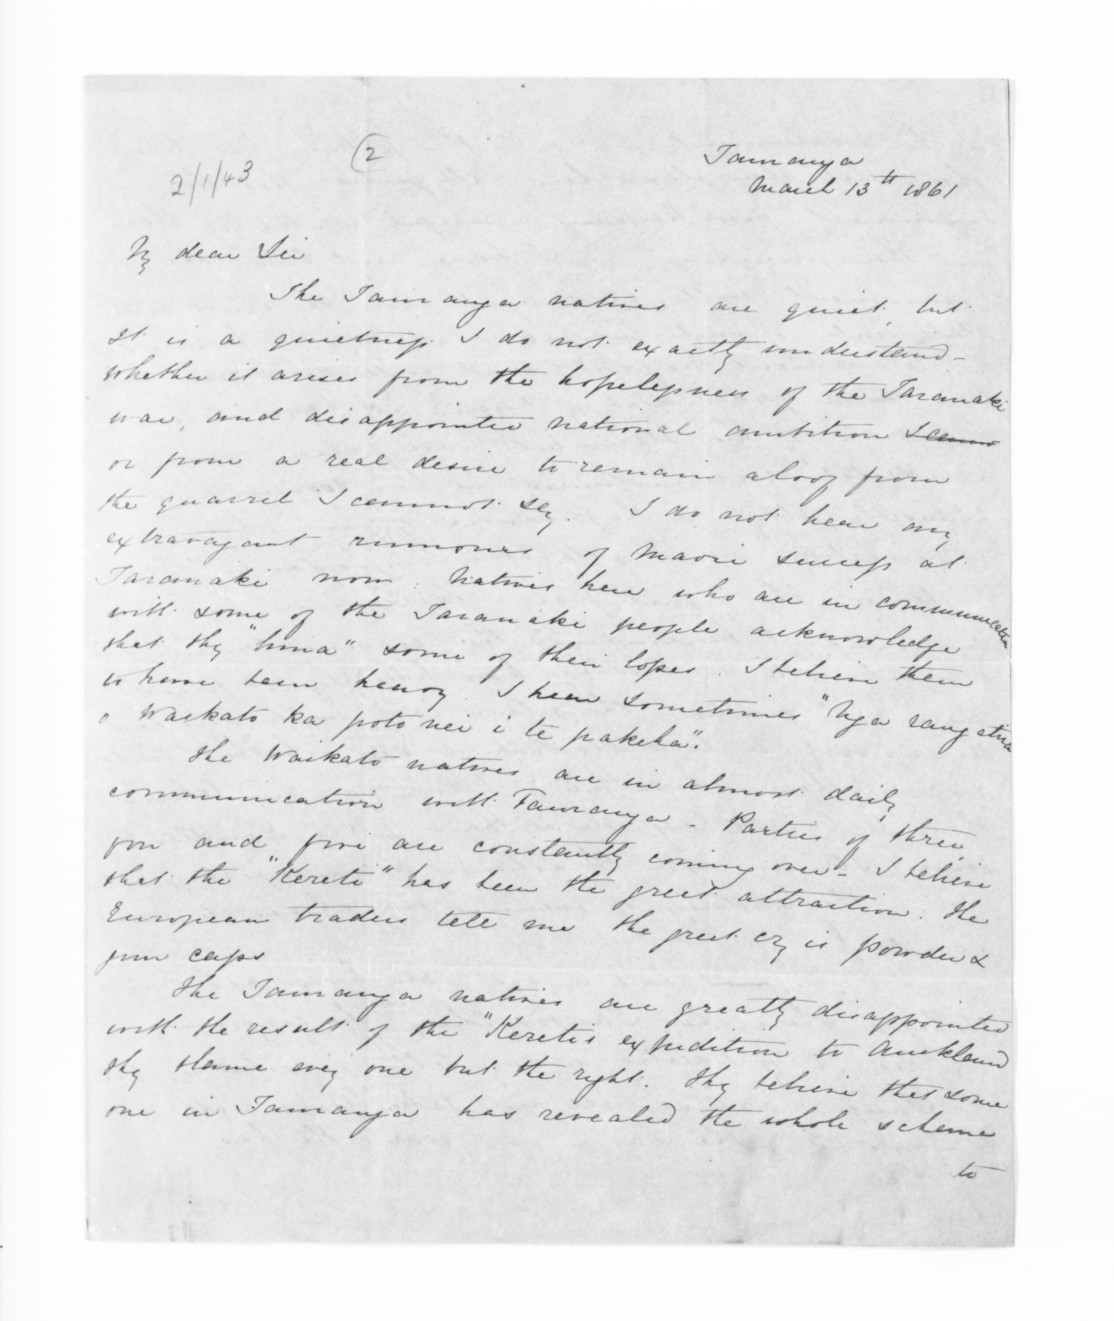 2/1/43
2
Tauranga
March 13th 1861
My dear Sir
The Tauranga natives are quiet, but
it is a quietness I do not exactly understand -
whether it arises from the hopelessness of the Taranaki
war, and disappointed national ambition
or from a real desire to remain aloof from
the quarrel I cannot say. I do not hear any
extravagant rumours of Maori success at
Taranaki now. Natives here who are in communication
with some of the Taranaki people acknowledge
that they "huna" some of their losses. I believe them
to have been heavy. I hear sometimes "Nga rangatira
o Waikato ka poto nei i te pakeha".
The Waikato natives are in almost daily
communication with Tauranga - Parties of three
four and five are constantly coming over - I believe
that the "Kereti" has been the great attraction. The
European traders tell me the great cry is powder &
gun caps
The Tauranga natives are greatly disappointed
with the result of the "Kereti's expedition to Auckland
They blame every one but the right. They believe that some
one in Tauranga has revealed the whole scheme
to